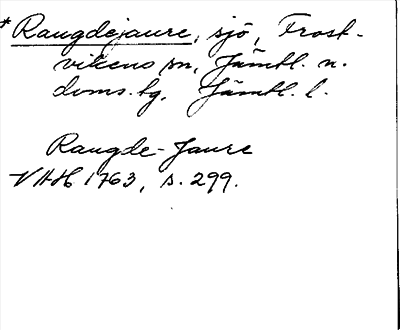 * Raugdejaure, sjö, Frost-
vikens sn, Jämtl. n.
doms.sg, Jämtl. l.
Raugde-Jaure
VAH 1763, s. 299.